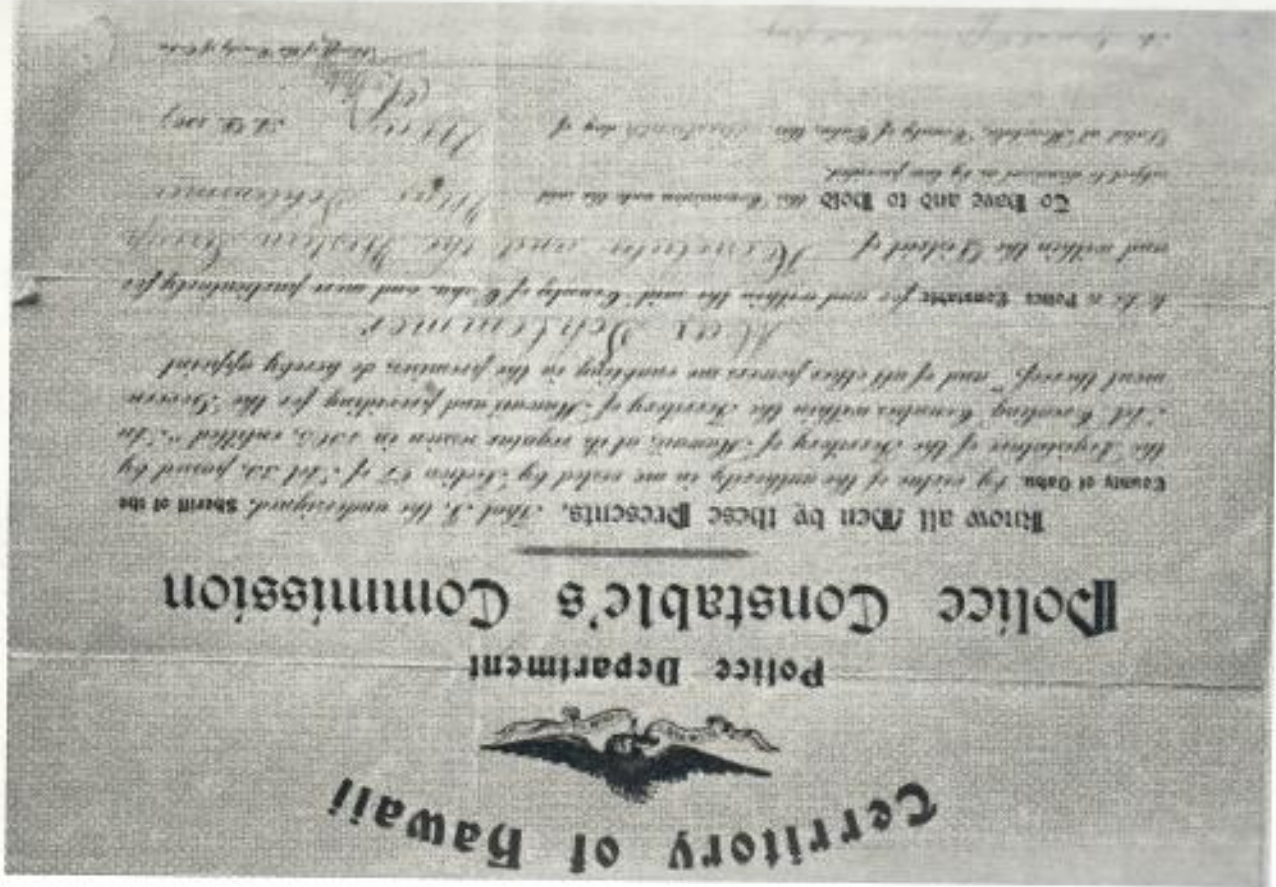 Territory of Hawaii
Police Department
Police Constable's Commission
Know all Men by these Presents, That I, the undersigned, Sheriff of the
County of Oahu, by virtue of the authority in me vested by Section 65 of Act 39, passed by
the Legislature of the Territory of Hawaii, at its regular session in 1905, entitled "An
Act Creating Counties within the Territory of Hawaii and providing for the Govern
ment thereof," and of all other powers me enabling in the premises, do hereby appoint
Max Schlemmer
to be a Police Constable for and within the said County of Oahu, and more particularly for
and within the District of Honolulu and the Western Group
To Have and to Hold this Commission unto the said Max Schlemmer
subject to dismissal as by law provided.
Dated at Honolulu, County of Oahu, this day of
A. D. 190
Sheriff of the County of Oahu